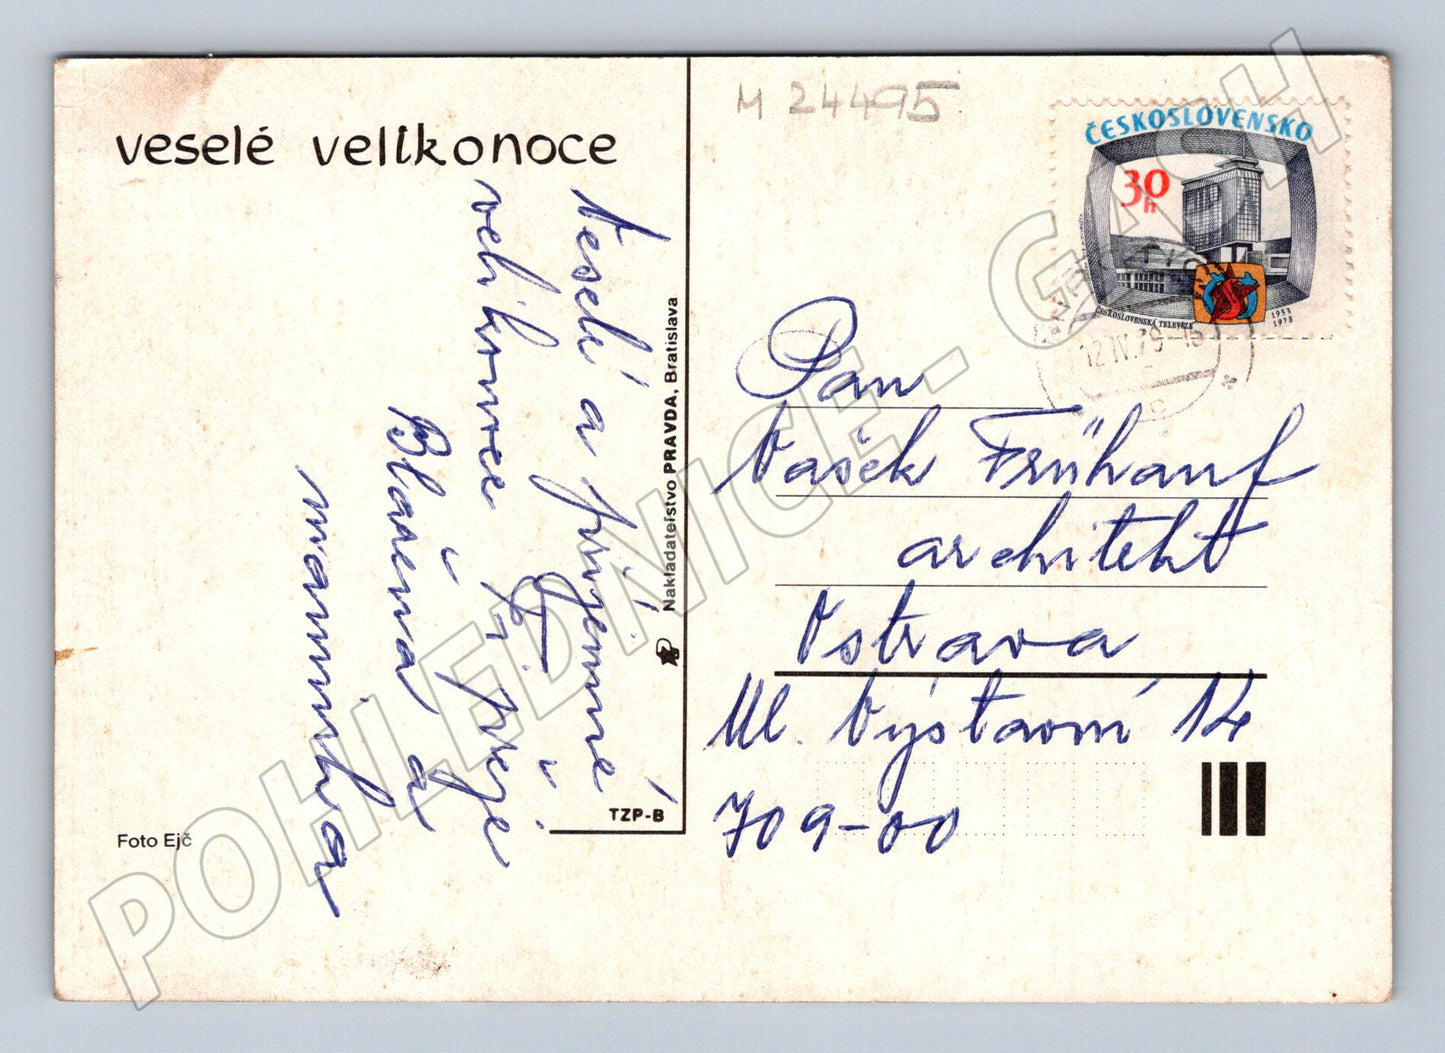 veselé velikonoce
M 24495
ČESKOSLOVENSKO
30
h
ČESKOSLOVENSKÁ TELEVIZE
1953
1978
12.IV.79-16
Veselé a příjemné
velikonoce Ti přeje
Blažena a
maminka
Foto Ejč
Nakladatelstvo PRAVDA, Bratislava
TZP-B
Pan
Vašek Frühauf
architekt
Ostrava
Ul. Výstavní 14
709-00
POHLEDNICE - GASH